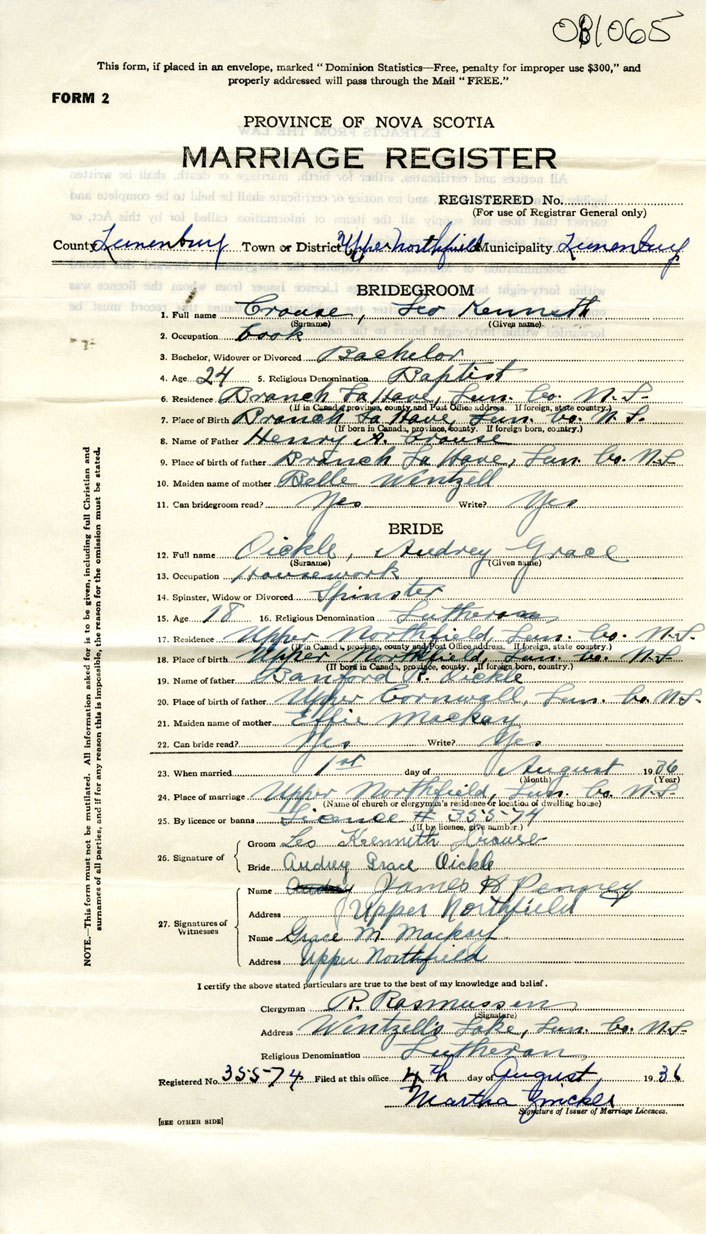 081065
This form, if placed in an envelope, marked "Dominion Statistics—Free, penalty for improper use $300," and
properly addressed will pass through the Mail "FREE."
FORM 2
PROVINCE OF NOVA SCOTIA
MARRIAGE REGISTER
REGISTERED No.
(For use of Registrar General only)
County Lunenburg Town or District Upper Northfield Municipality Lunenburg
BRIDEGROOM
1. Full name Crouse, Leo Kenneth
(Surname) (Given name)
2. Occupation Cook
3. Bachelor, Widower or Divorced Bachelor
4. Age 24 5. Religious Denomination Baptist
6. Residence Branch LaHave, Lun. Co. N.S.
(If in Canada, province, county and Post Office address. If foreign, state country.)
7. Place of Birth Branch LaHave, Lun. Co. N.S.
(If born in Canada, province, county. If foreign born, country.)
8. Name of Father Henry A. Crouse
9. Place of birth of father Branch LaHave, Lun. Co. N.S.
10. Maiden name of mother Belle Wentzell
11. Can bridegroom read? Yes Write? Yes
BRIDE
12. Full name Oickle, Audrey Grace
(Surname) (Given name)
13. Occupation Housework
14. Spinster, Widow or Divorced Spinster
15. Age 18 16. Religious Denomination Lutheran
17. Residence Upper Northfield, Lun. Co. N.S.
(If in Canada, province, county and Post Office address. If foreign, state country.)
18. Place of birth Upper Northfield, Lun. Co. N.S.
(If born in Canada, province, county. If foreign born, country.)
19. Name of father Banford P. Oickle
20. Place of birth of father Upper Cornwall, Lun. Co. N.S.
21. Maiden name of mother Effie Mackay
22. Can bride read? Yes Write? Yes
23. When married 1st day of August 1936
(Month) (Year)
24. Place of marriage Upper Northfield, Lun. Co. N.S.
(Name of church or clergyman's residence or location of dwelling house)
25. By licence or banns License # 35574
(If by licence, give number.)
26. Signature of
Groom Leo Kenneth Crouse
Bride Audrey Grace Oickle
27. Signatures of Witnesses
Name James H Penney
Address Upper Northfield
Name Grace M. Mackay
Address Upper Northfield
I certify the above stated particulars are true to the best of my knowledge and belief.
Clergyman P. Rasmussen
(Signature)
Address Wentzell's Lake, Lun. Co. N.S.
Religious Denomination Lutheran
Registered No. 35574 Filed at this office 4th day of August 1936
Martha
Signature of Issuer of Marriage Licences.
[SEE OTHER SIDE]
NOTE.—This form must not be mutilated. All information asked for is to be given, including full Christian and
surnames of all parties, and if for any reason this is impossible, the reason for the omission must be stated.